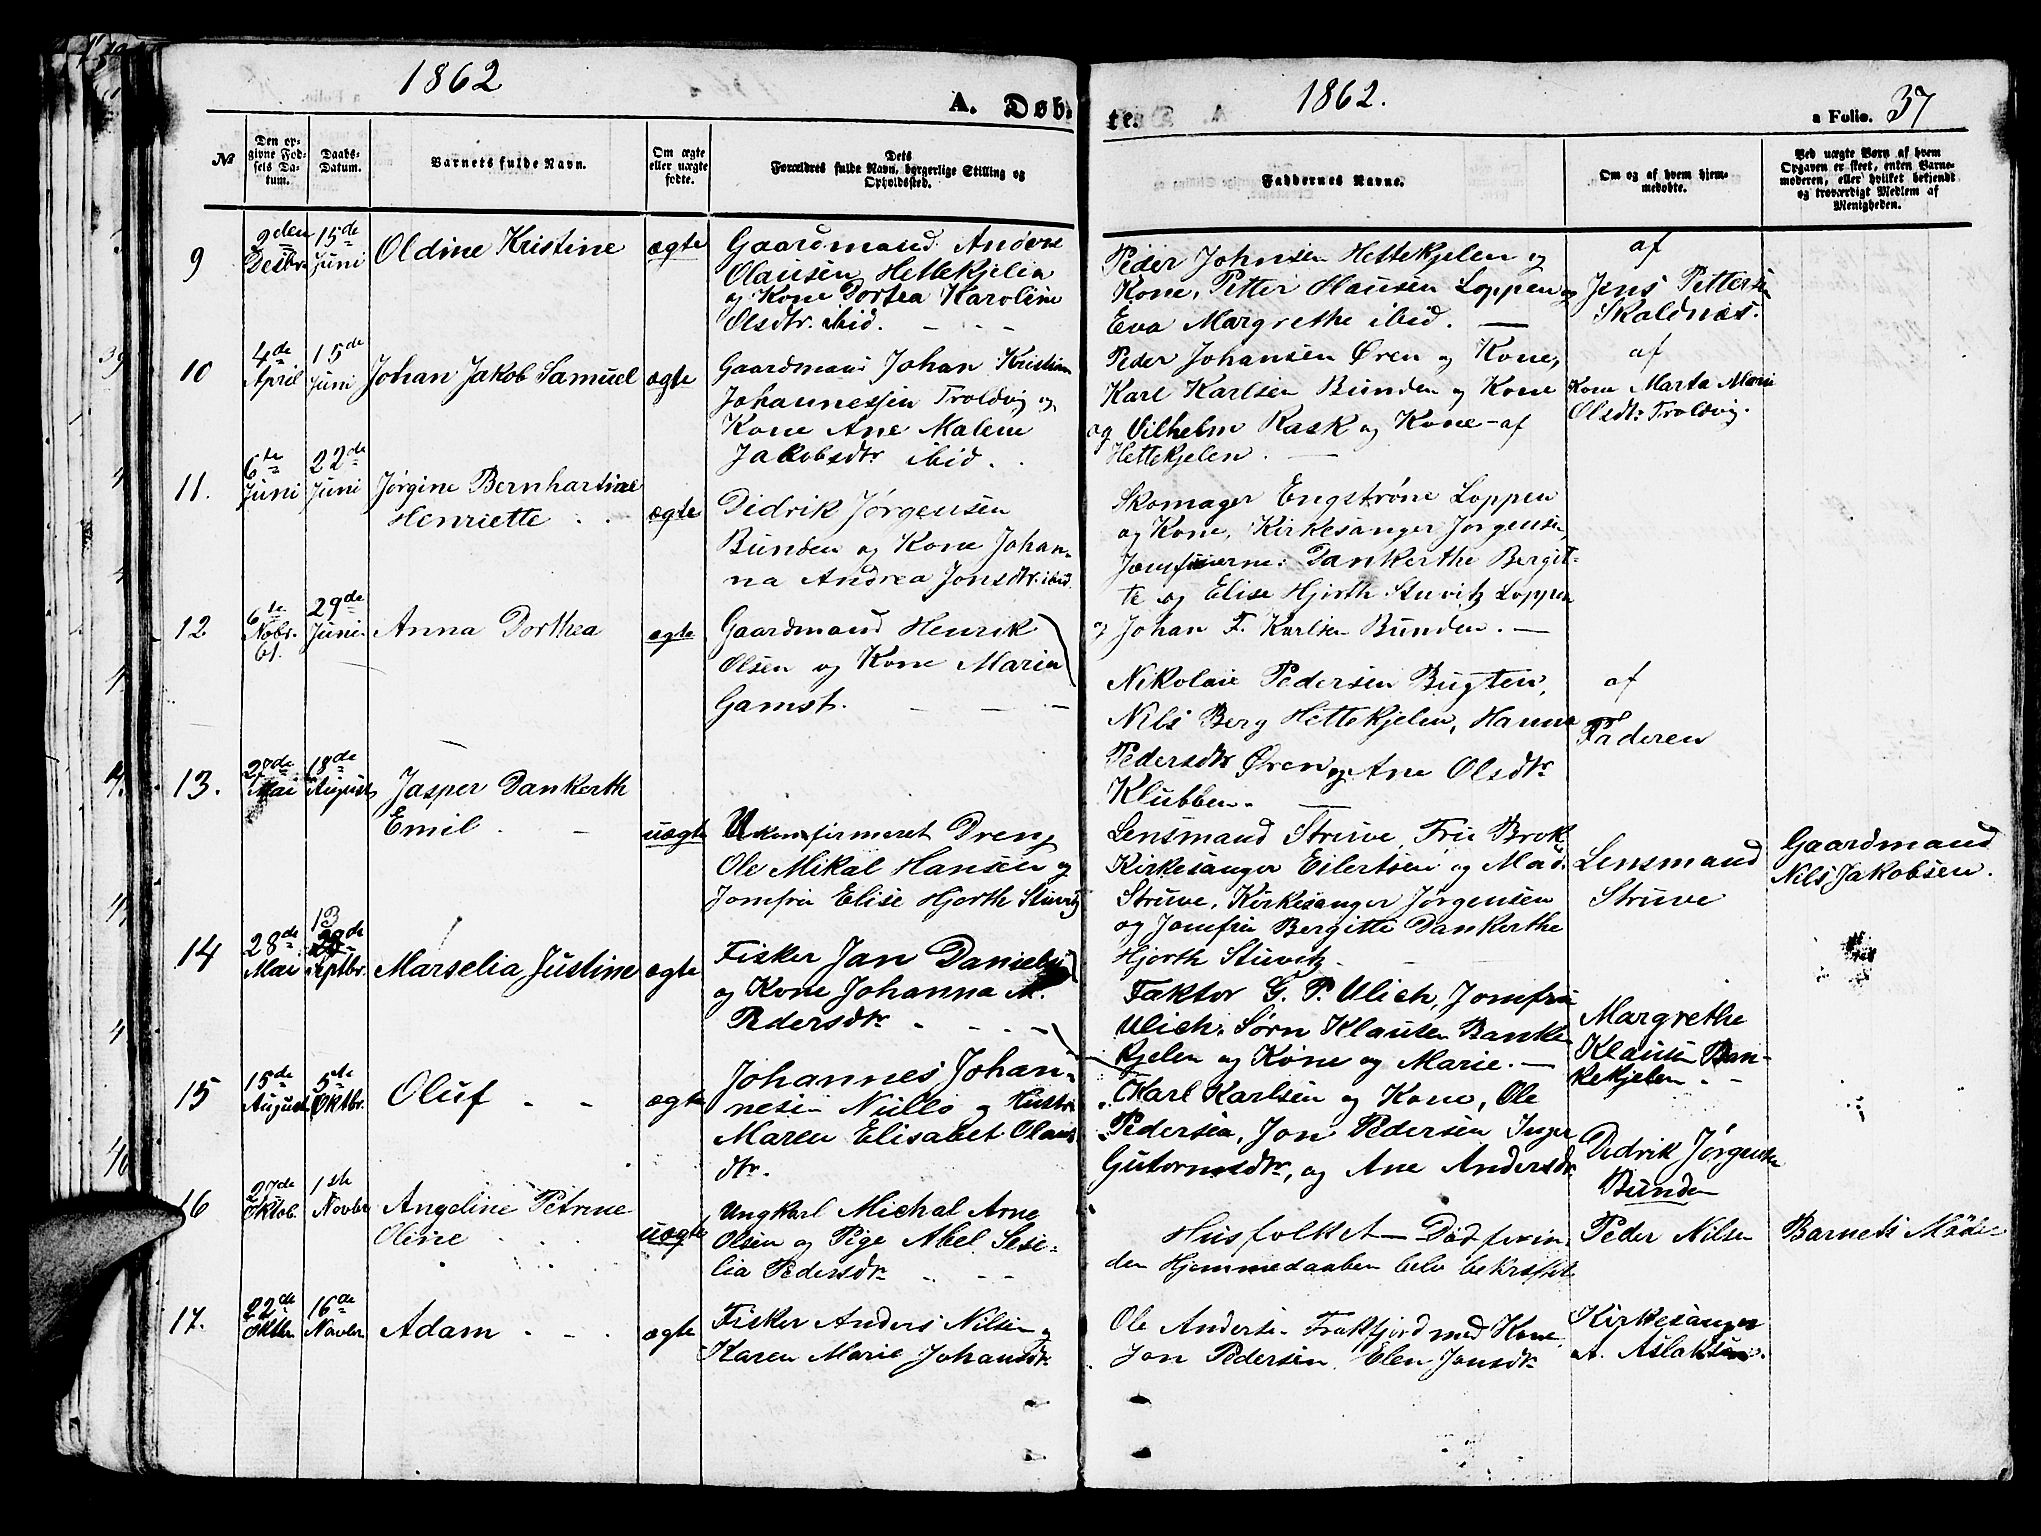 1862
A. Døb-
№
Den op-
givne Fød-
sels Da-
tum.
Daabs-
Datum.
Barnets fulde Navn.
Om ægte
eller uægte
fødte.
Dets
Forældres fulde Navn, borgerlige Stilling og
Opholdssted.
9
2den
Desbr
15de
Juni
Oldine Kristine
ægte
Gaardmand Anders
Olausen Hettekjelen
og Kone Dortea Karoline
Olsdtr. ibid.
10
4de
April
15de
Juni
Johan Jakob Samuel
ægte
Gaardmand Johan Kristian
Johannesen Troldvig og
Kone Ane Malene
Jakobsdtr ibid.
11.
6te
Juni
22de
Juni
Jørgine Bernhartine
Henriette
ægte
Didrik Jørgensen
Bunden og Kone Johan-
na Andrea Jonsdtr. ibid
12
6te
Nobr.
61.
29de
Juni
Anna Dorthea
ægte
Gaardmand Henrik
Olsen og Kone Maria
Gamst.
13.
27de
Mai
18de
August
Jasper Dankerth
Emil
uægte
Ukonfirmeret Dreng
Ole Mikal Hansen og
Jomfru Elise Hjorth Stuvitz
14
28de
Mai
13
Septbr.
Marselia Justine
ægte
Fisker Jan Daniels
og Kone Johanna M.
Pedersdtr
15
15de
August
5te
Oktbr.
Oluf
ægte
Johannes Johan-
nesen Nullo og Hustru
Maren Elisabet Olaus
dtr.
16
27de
Oktob.
1ste
Novbr
Angeline Petrine
Oline
uægte
Ungkarl Michal Arne
Olsen og Pige Abel Sesi-
lia Pedersdtr
17.
22de
Oktbr
16de
Novbr
Adam
ægte
Fisker Anders Nilsen og
Karen Marie Johansdtr
te.
1862.
a Folio. 37
Faddernes Navne.
Om og af hvem hjem-
medøbte.
Ved uægte Børn af hvem
Opgaven er skeet, enten Barne-
moderen, eller hvilket bekjendt
og troværdigt Medlem af
Menigheden.
Peder Johnsen Hettekjelen og
Kone, Petter Hansen Loppen og
Eva Margrethe ibid.
af
Jens Pettersen
Skaldnæs.
Peder Johansen Øren og Kone,
Karl Karlsen Bunden og Kone
og Vilhelm Rask og Kone af
Hettekjelen.
af
Kone Marta Marie
Olsdtr Troldvig.
Skomager Engstrøne Loppen
og Kone, Kirkesanger Jørgensen,
Jomfruerne: Dankerthe Bergit-
te og Elise Hjorth Stuvitz Loppen
og Johan F. Karlsen Bunden.
Nikolaie Pedersen Bugten,
Nils Berg Hettekjelen, Hanna
Pedersdtr Øren og Ane Olsdtr
Klubben.
af
Faderen
Lensmand Struve, Fru Brok
Kirkesanger Eilertsen og Mad.
Struve, Kirkesanger Jørgensen
og Jomfru Bergitte Dankerthe
Hjorth Stuvitz
Lensmand
Struve
Gaardmand
Nils Jakobsen.
Faktor G. P. Ulich, Jomfru
Ulich, Sørn Klausen Banke-
kjelen og Kone og Marie.
Margrethe
Klausen Ban-
kekjelen.
Karl Karlsen og Kone, Ole
Pedersen, Jon Pedersen Inger
Gutormsdtr, og Ane Andersdtr
Didrik Jørgensen
Bunden
Husfolket - Død forin
den Hjemmedaaben blev bekræftet
Peder Nilsen
Barnets Moder
Ole Anderse. Frakfjord med Kone
Jon Pedersen, Elen Jonsdtr
Kirkesanger
A. Aslaksen.